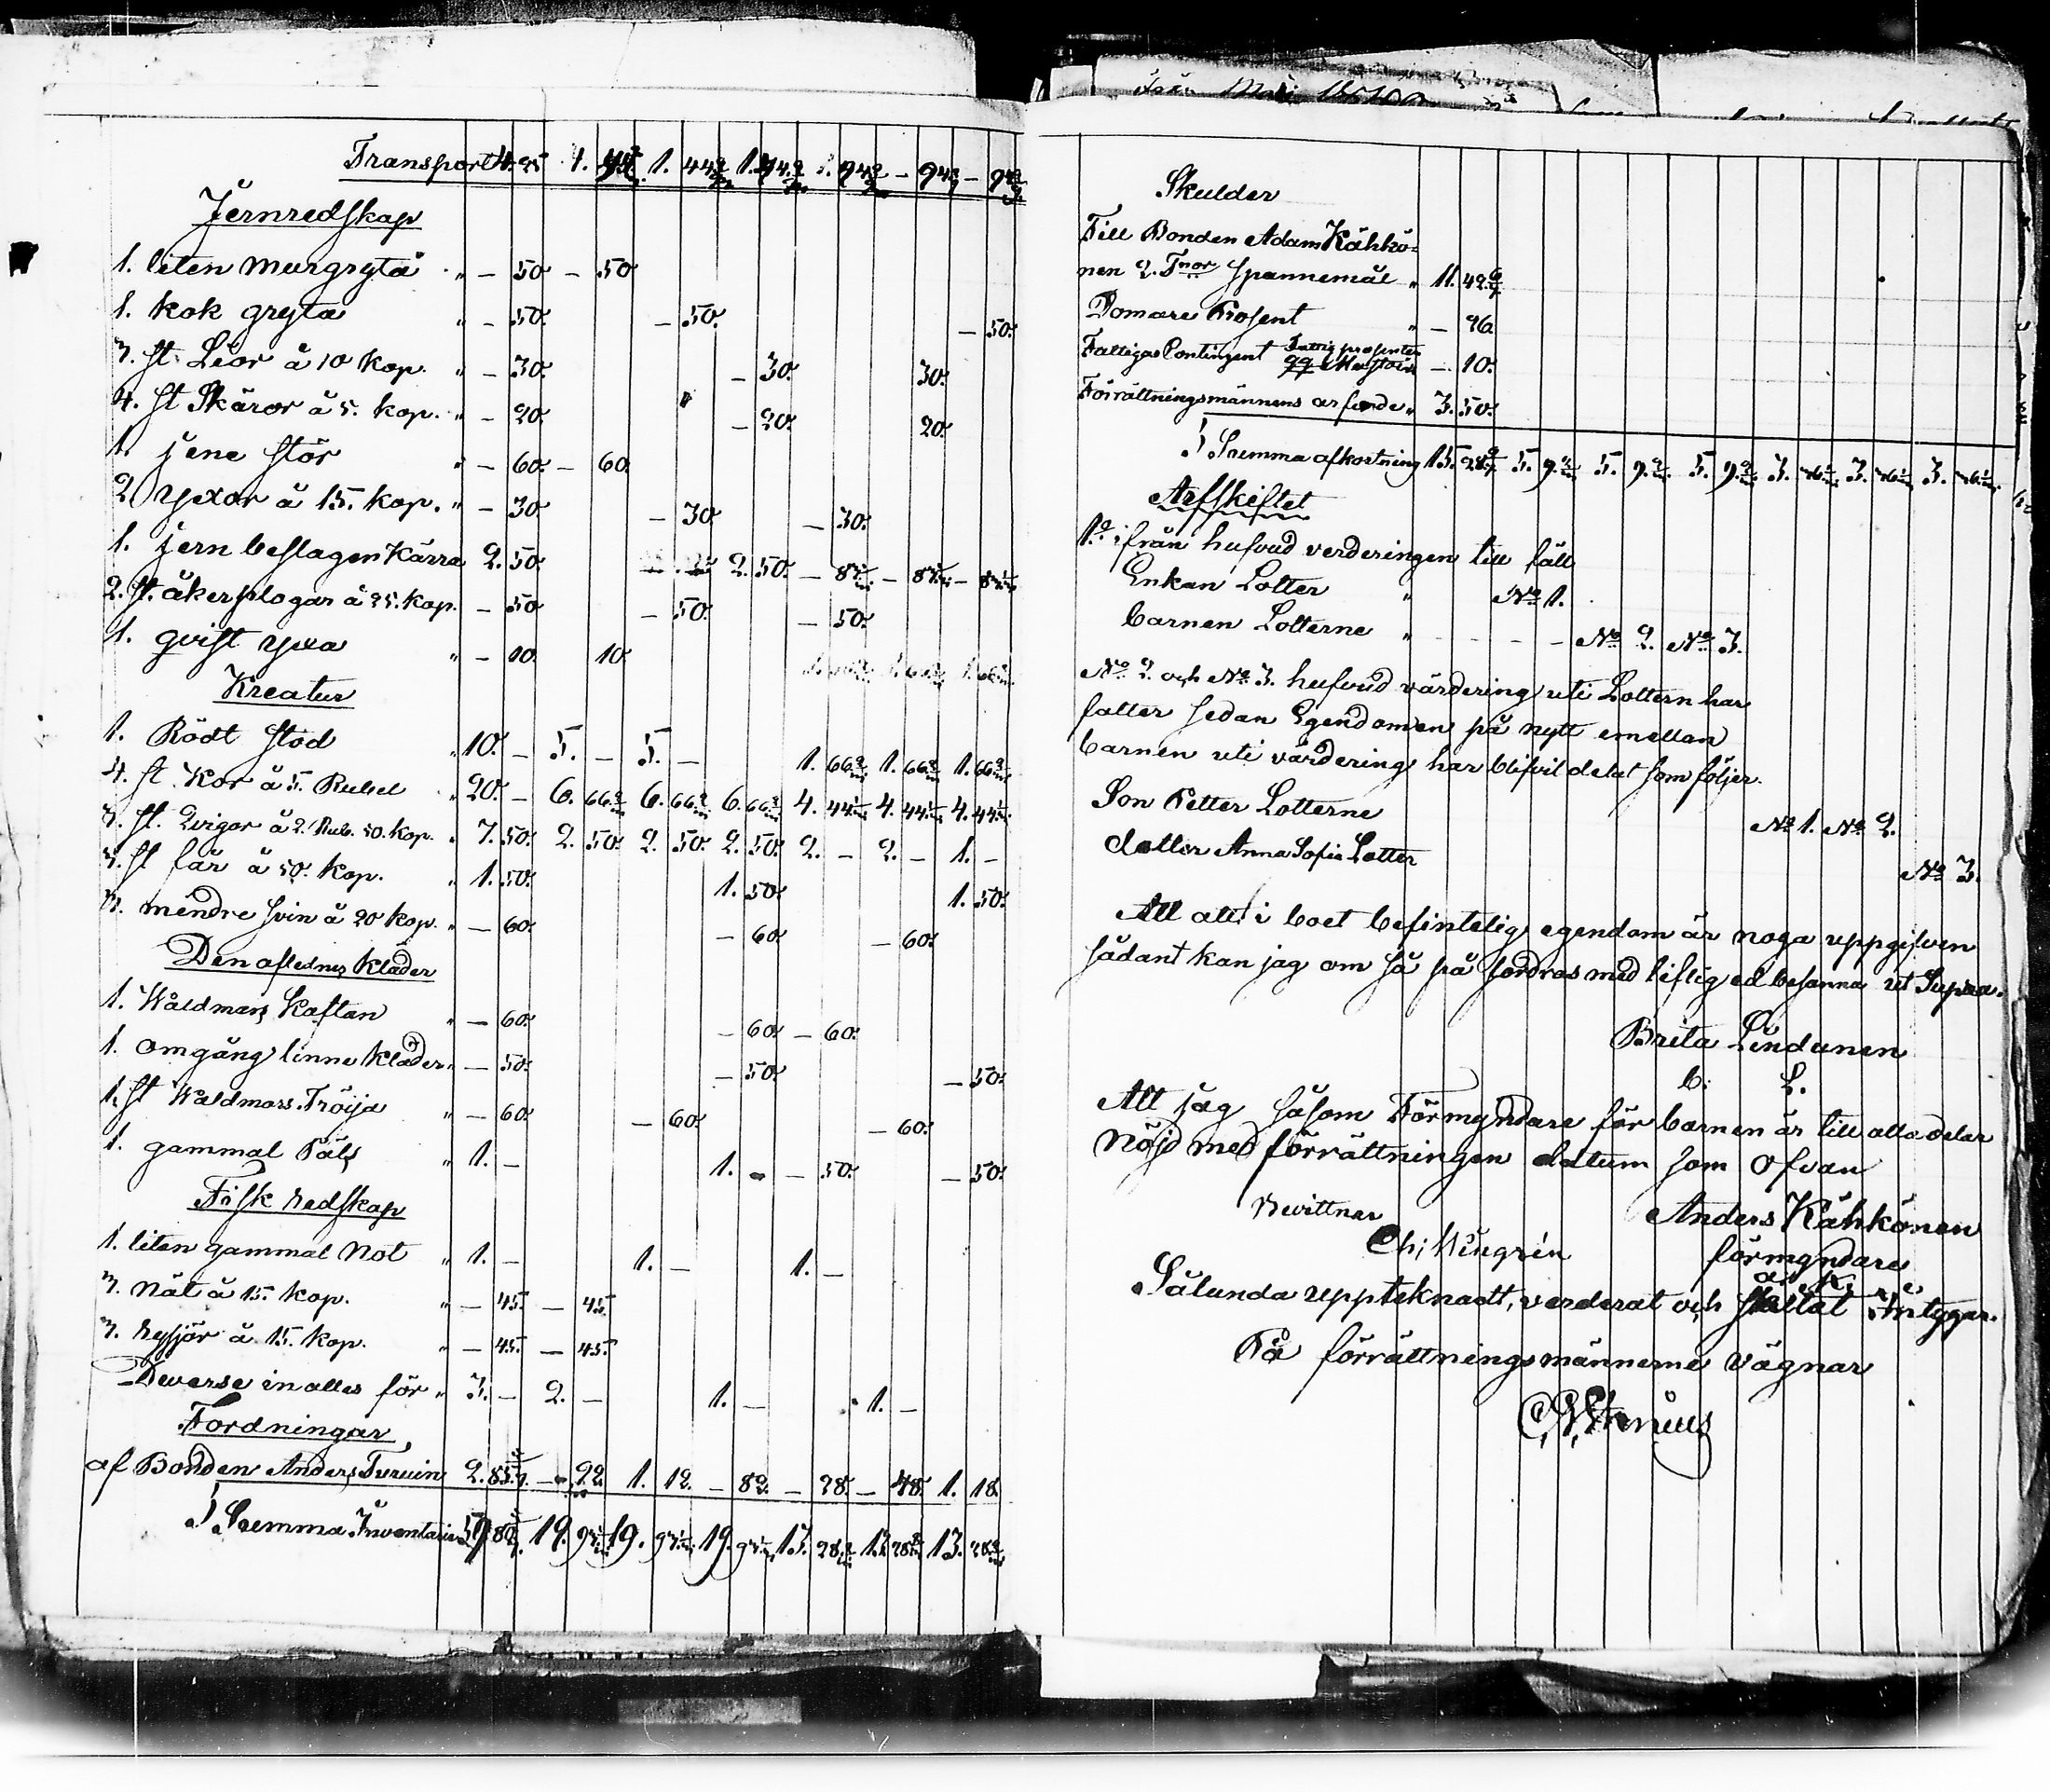 Transport 4. 35 1. 1. 44 1. 44 94 — 94 — 94
Jernredskap
1. liten murgryta " — 50. — 50
1. kok gryta " — 50. — 50. — 50.
3. st Lior à 10 kop. " — 30. — 30. 30.
4. st Skäror à 5. kop. " — 20. — 20. 20.
1. jene stör " — 60. — 60.
2 yxor à 15. kop. " — 30. — 30. — 30.
1. jern beslagen Kärra 2. 50. 2. 50. — 83 — 83 — 83
2. st. åkerplogar à 25. kop. — 50 — 50. — 50.
1. qvist yxa " — 10. 10.
Kreatur
1. Rödt stod " 10. — 5. — 5. — 1. 66⅔ 1. 66⅔ 1. 66⅔
4. st. Kor à 5. Rubel " 20. — 6. 66⅔ 6. 66⅔ 6. 66⅔ 4. 44 4. 44 4. 44
3. st. Qvigor à 2. Rub. 50. kop. " 7. 50. 2. 50. 2. 50 2. 50. 2. — 2. — 1. —
3. st får à 50. kop. " 1. 50. 1. 50. 1. 50.
3. mendre svin à 20 kop. " — 60. — 60. — 60.
Den aflednes Kläder
1. Wåldmars Kaftan " — 60. — 60. — 60.
1. omgång linne kläder " — 50. — 50. — 50.
1. st Waldmars Tröija " — 60. — 60. — 60.
1. gammal Päls " 1. — 1. — — 50. — 50.
Fisk redskap
1. liten gammal Not " 1. — 1. — 1. —
3. Nät à 15. kop. " — 45. — 45.
3. ryssjor à 15. kop. " — 45. — 45.
Diverse in alles för " 3. — 2. — 1. — 1. —
Fordningar
af Bonden Anders Turuin 2. 85. — 22 1. 12. — 82. — 28. — 48. 1. 18.
Summa Inventarium 59. 80 19. 93 19. 93 19. 93 13. 28 13. 28 13. 28
Skulder
Till Bonden Adam Kähkö-
nen 2. Tnor spannemål " 11. 42.
Domare Prosent " — 26
Fattig prosenten
Fattigas Contingent — 10.
Förrättningsmännens arfvode " 3. 50.
Summa afkortning 15. 28 5. 9 5. 9 5. 9 3. 3. 3.
Arfskiftet
1o ifrån hufvud verderingen till fäll
Enkan Lotter " No 1.
barnen Lotterne " — — — — No 2. No 3.
No 2. och No 3. hufvud värdering uti Lottern har
faller sedan Egendomen på nytt emellan
barnen uti värdering har blifvit delat som följer.
Son Petter Lotterne No 1. No 2.
dotter Anna Sofia Lotter No 3.
Att allt i boet befintelig egendom är noga uppgifven
sådant kan jag om så på fordras med liflig ed besanna ut Supra.
Brita Lindunen
b. L.
Att jag såsom Förmyndare för barnen är till alla delar
Nöjd med förrättningen datum som ofvan
Bevittnar Anders Kähkönen
förmyndare
A. K.
Sålunda uppteknadt, verderat och skiftat intygar.
På förrättningsmännerne vägnar